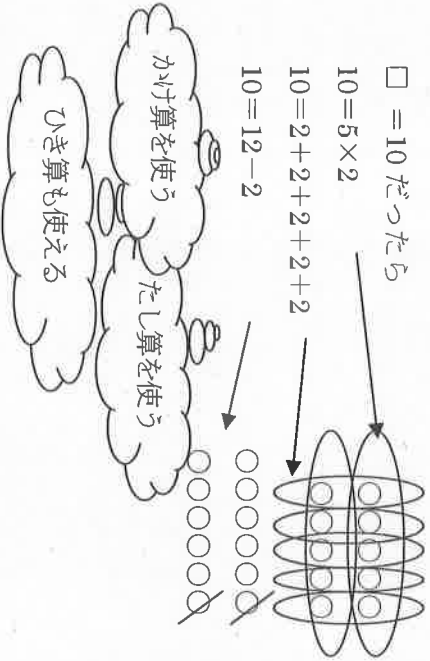 □＝10だったら
10＝5×2
10＝2＋2＋2＋2＋2
10＝12－2
かけ算を使う
たし算を使う
ひき算も使える